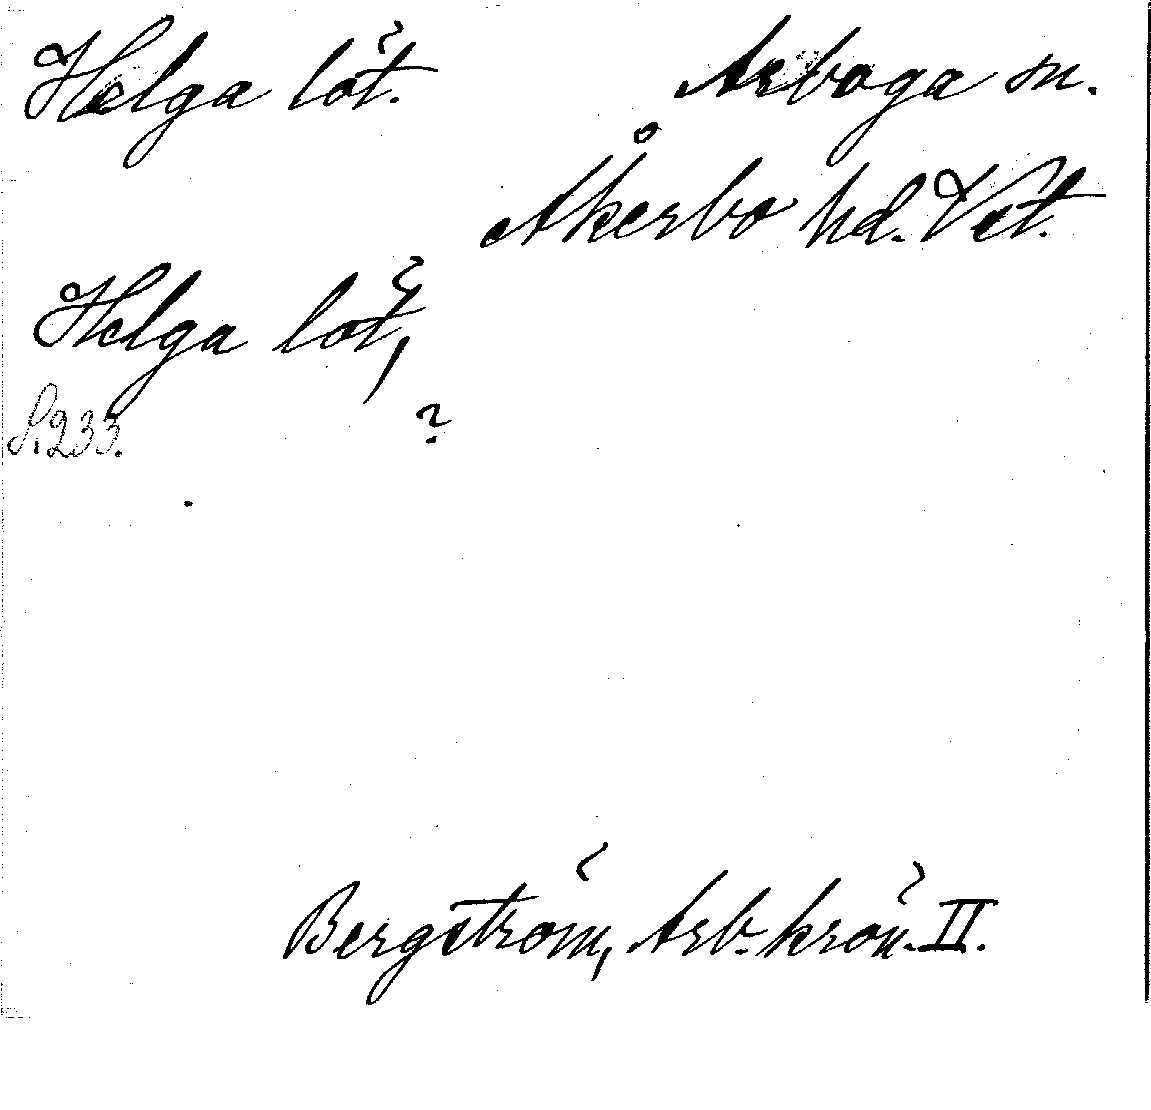 Helga löt. Arboga sn.
Åkerbo hd. Vet.
Helga löt,
S. 233.
?
Bergström, Arb. krön. II.